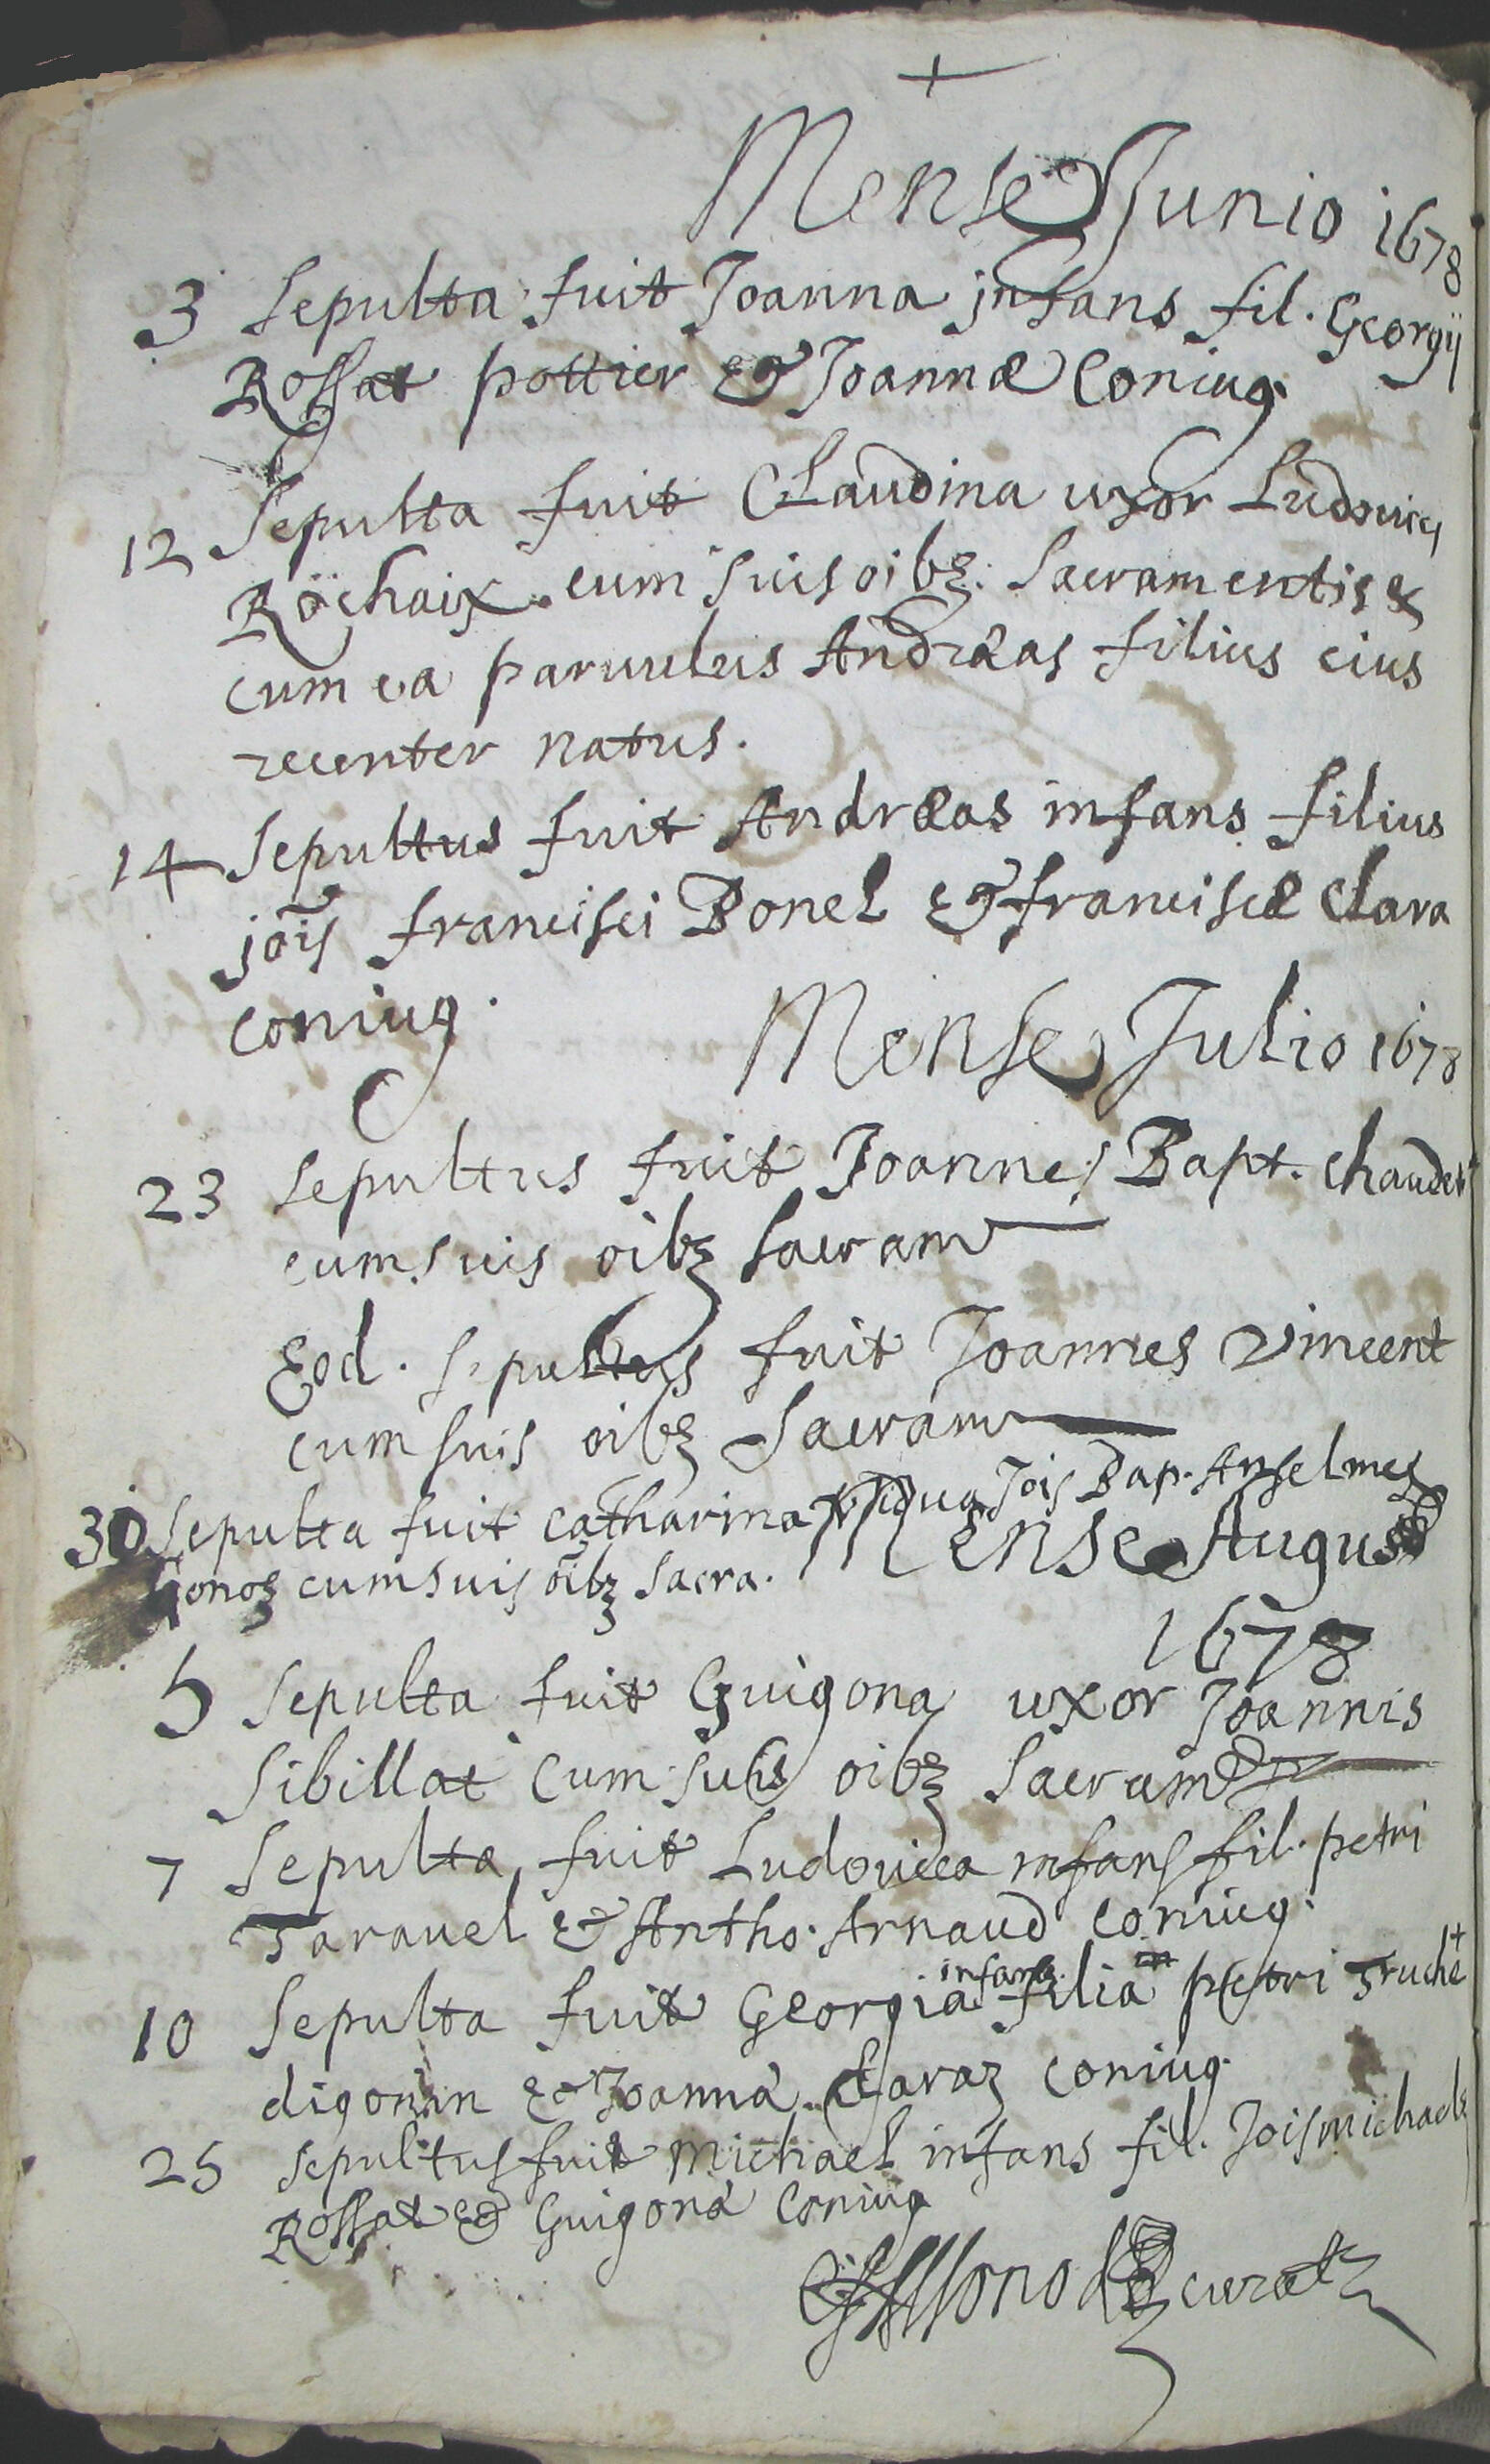 +
Mense Junio 1678
3 Sepulta fuit Joanna infans fil. Georgij
Rossat pottier & Joannæ Coniug.
12 Sepulta fuit Claudina uxor Ludovici
Röchaix cum suis oibz. Sacramentis &
cum ea parvulus Andræas filius eius
recenter natus.
14 Sepultus fuit Andræas infans filius
jõis francisci Bonel & franciscæ Clara
coniug.
Mense Julio 1678
23 Sepultus fuit Joannes Bapt. Chaudet
cum suis oibz Sacram
Eod. Sepultus fuit Joannes Vincent
cum suis oibz Sacram
30 Sepulta fuit Catharina vidua Jois Bap. Anselmez
Gonoz cum suis oibz Sacra.
Mense August
1678
5 Sepulta fuit Guigona uxor Joannis
Sibillat cum suis oibz Sacram
7 Sepulta fuit Ludovica infans fil. petri
Taravel & Antho. Arnaud Coniug.
10 Sepulta fuit Georgia infans filia petri Truchet
digonin & Joanna Claraz Coniug.
25 Sepultus fuit Michael infans fil. Jois michaelis
Rossat & Guigona Coniug
curat